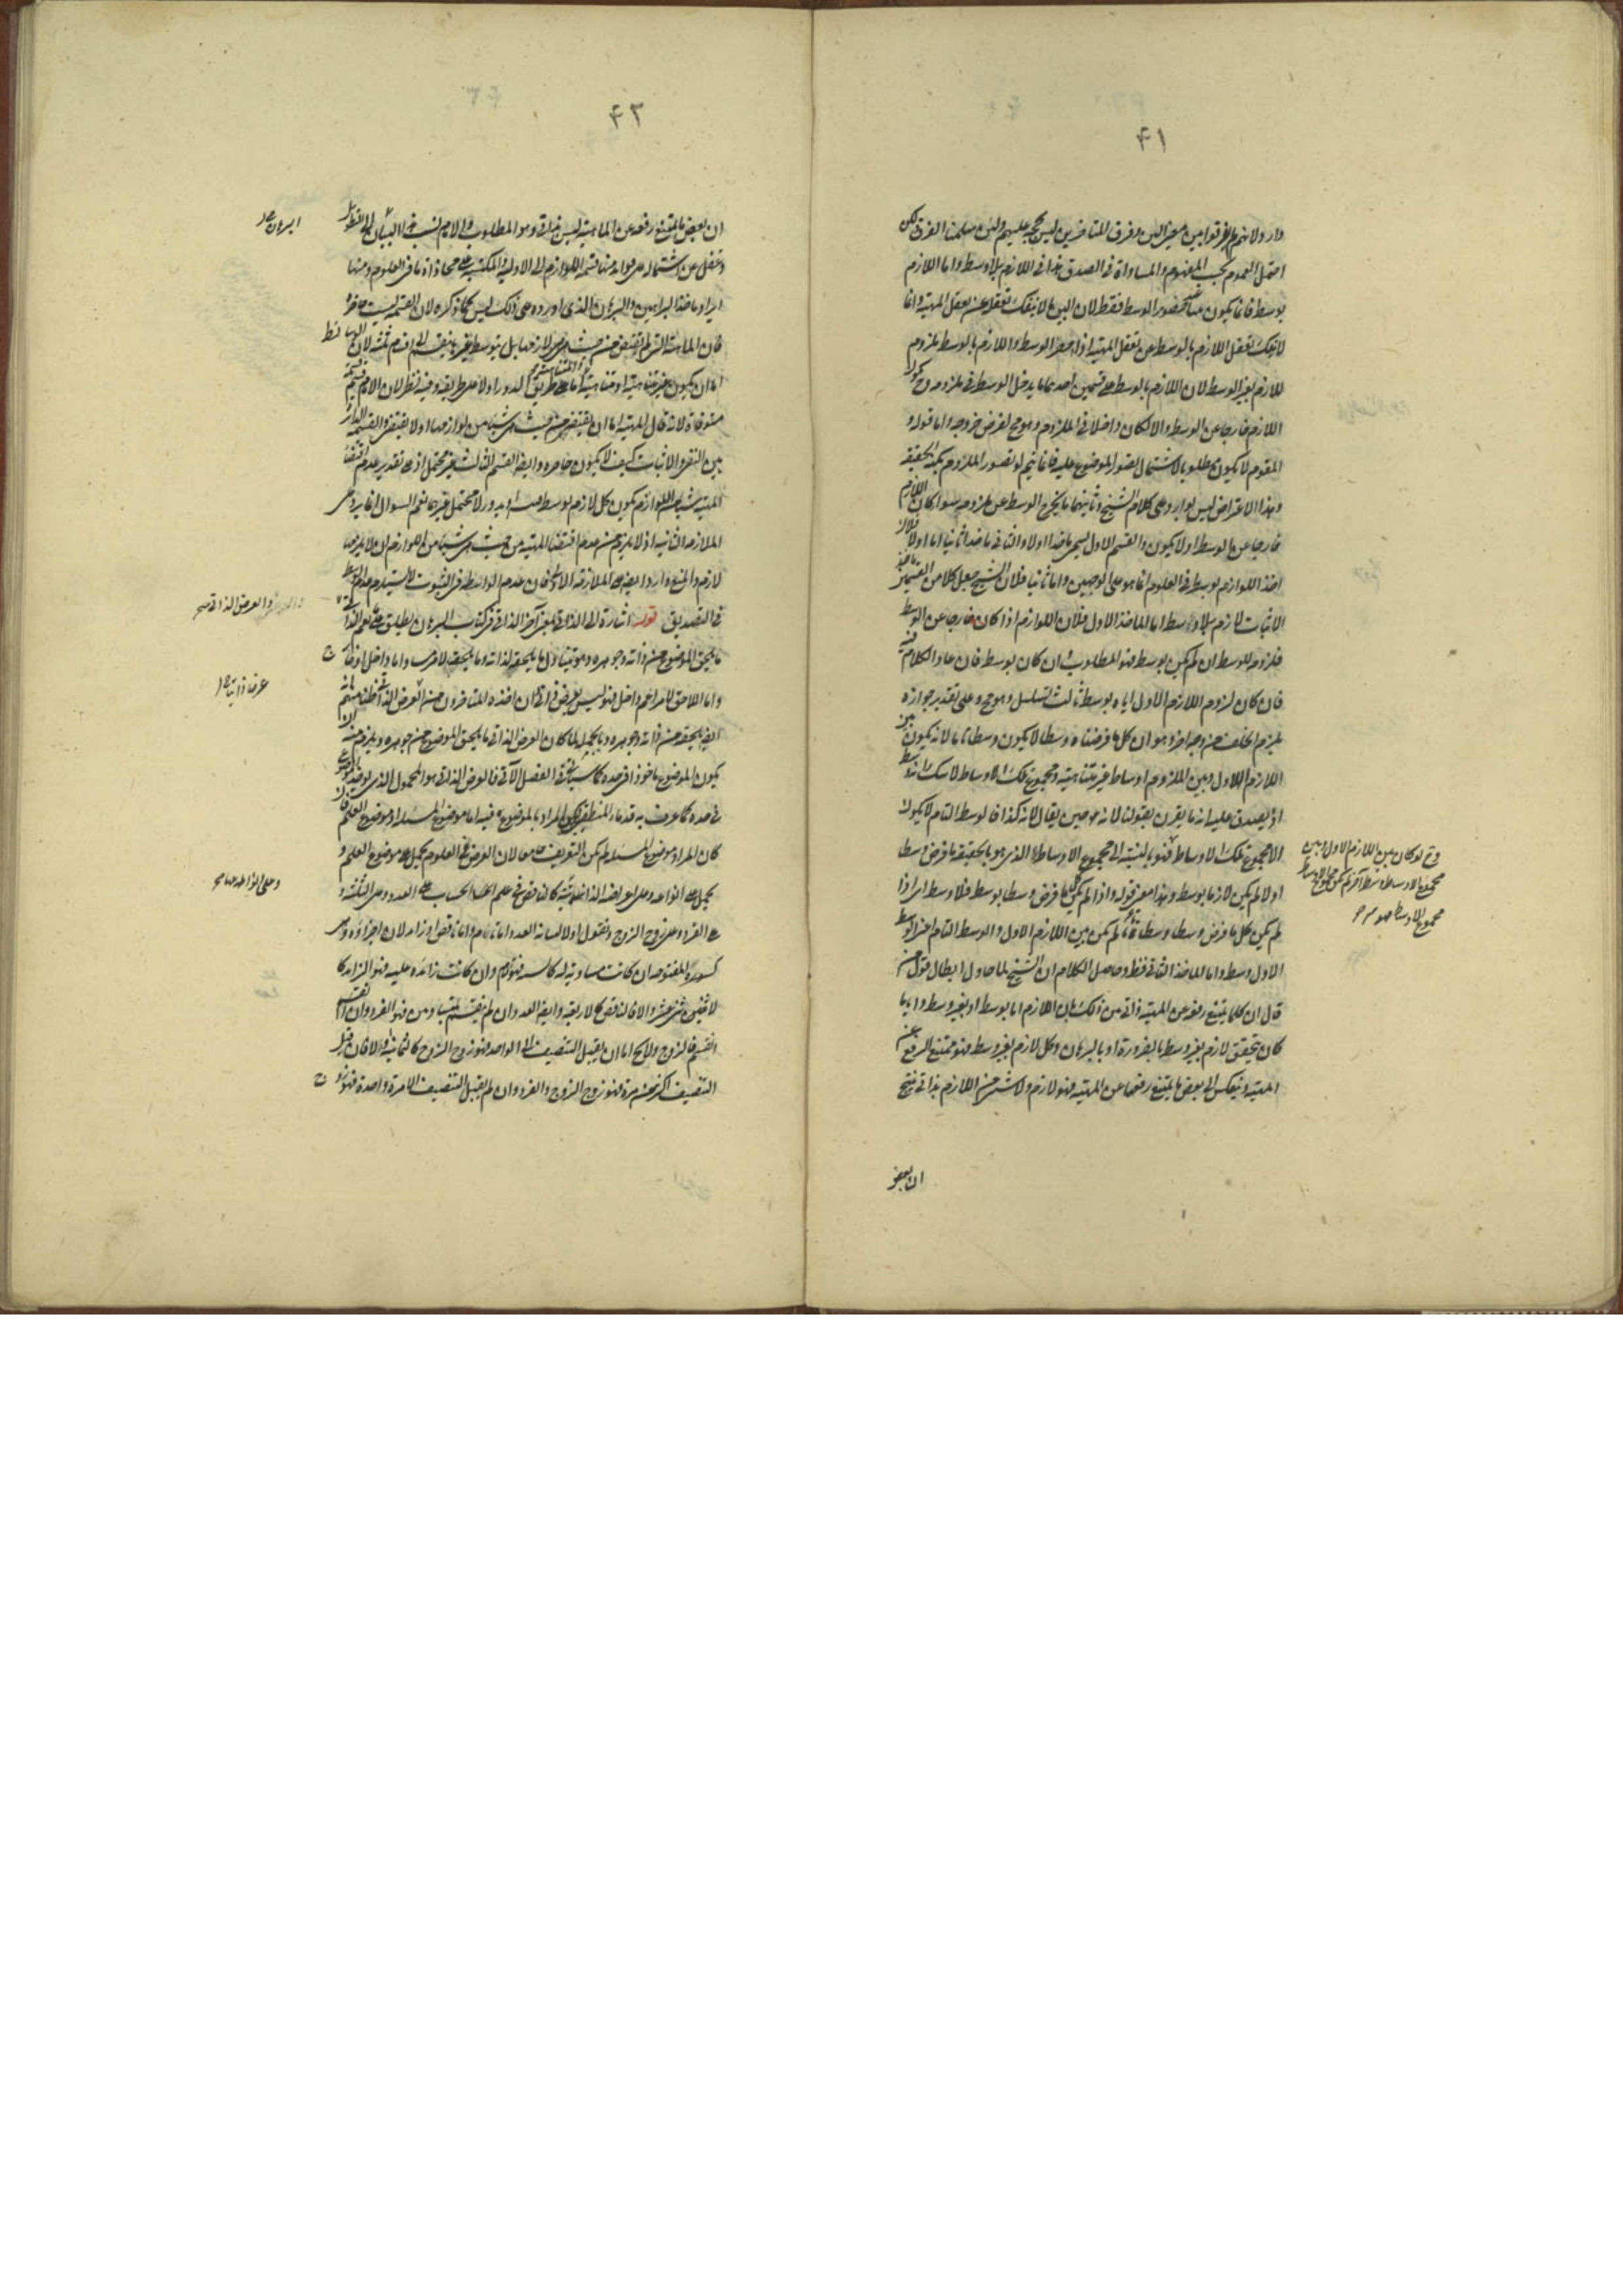 ۴۱
وارد ولانهم لم يفرقوا بين معنى البين وفرق المتأخرين ليس بحجة عليهم ولئن سلمنا الفرق لكن
العموم بحسب المفهوم والمساواة فى الصدق هذا فى اللازم بلا وسط واما اللازم
بوسط فانما يكون حضور الوسط فقط لان البين ما لا ينفك تعقله عن تعقل المهية وانما
لا ينفك تعقل اللازم بالوسط عن تعقل المهية اذا حضر الوسط واللازم بالوسط ملزوم
للازم بغير الوسط لان اللازم بالوسط على قسمين احدهما ما يدخل الوسط فى ملزومه وح يكون
اللازم خارجا عن الوسط والا لكان داخلا فى الملزوم وهو مح لفرض خروجه واما قوله و
المقوم لا يكون مطلوبا لاشتمال تصور الموضوع عليه فانما يتم لو تصور الملزوم بكنه الحقيقة
وهذا الاعتراض ليس بوارد على كلام الشيخ وثانيهما ما يخرج الوسط عن ملزومه سواء كان اللازم
خارجا عن الوسط اولا يكون والقسم الاول يسمى ماخذا اولا والثانى ماخذا ثانيا اما اولا فلان
اخذ اللوازم بوسط فى العلوم انما هو على الوجهين واما ثانيا فلان الشيخ جعل كلا من القسمين ماخذ
لاثبات لازم بلا وسط اما الماخذ الاول فلان اللوازم اذا كان خارجا عن الوسط
فلزومه للوسط ان لم يكن بوسط فهو المطلوب وان كان بوسط فان عاد الكلام فيه
فان كان لزوم اللازم الاول اياه بوسط ثالث تسلسل وهو مح وعلى تقدير جوازه
يلزم الخلف من وجه اخر وهو ان كل ما فرضناه وسطا لا يكون وسطا تاما لانه يكون بين
اللازم الاول وبين الملزوم اوساط غير متناهية ومجموع تلك الاوساط لا شك انه وسط
اذ يصدق عليه انه ما يقرن بقولنا لانه حين يقال لانه كذا فالوسط التام لا يكون
الا مجموع تلك الاوساط فهو بالنسبة الى مجموع الاوساط الذى هو بالحقيقة ما فرض وسطا
اولا لم يكن لازما بوسط وهذا معنى قوله واذا لم يكن ما فرض وسطا بوسط فلا وسط اى اذا
لم يكن كل ما فرض وسطا وسطا تاما لم يكن بين اللازم الاول والوسط التام اعنى الوسط
الاول وسط واما الماخذ الثانى فظ وحاصل الكلام ان الشيخ لما حاول ابطال قول من
قال ان كلما يمتنع رفعه عن المهية ذاتى من ذلك بان اللازم اما بوسط او بغير وسط وايا ما
كان يتحقق لازم بغير وسط بالضرورة او بالبرهان وكل لازم بغير وسط فهو ممتنع الرفع عن
المهية وينعكس الى بعض ما يمتنع رفعها عن المهية فهو لازم ولا شىء من اللازم بذاتى ينتج
ان بعض
وح لو كان بين اللازم الاول وبين
مجموع الاوساط وسط آخر لم يكن مجموع الاوساط
مجموع الاوساط هو
۴۲
ان بعض ما يمتنع رفعه عن الماهية ليس بذاتى وهو المطلوب والامام نسب هذا البيان الى التطويل
وغفل عن اشتماله على فوائد منها قسمة اللوازم الى الاولية والمكتسبة على محاذاة ما فى العلوم ومنها
ايراد ماخذ البراهين والبرهان الذى اورده على ذلك ليس كما ذكره لان القسمة ليست حاصرة
فان الماهية التى لم تقتض من حيث هى هى لازمها بل بتوسط غير ما ينقسم الى اقسام ثلثة لان الوسائط
اما ان يكون غير متناهية او متناهية اما على طريق الدور اولا على طريقه وفيه نظر لان الامام قسمه
مستوفاة لانه قال المهية اما ان يقتضى من حيث هى شيئا من لوازمها اولا يقتضى والقسمة الدائرة
بين النفى والاثبات كيف لا يكون حاصرة وايضا القسم الثالث غير محتمل اذ على تقدير عدم اقتضاء
المهية شيئا من اللوازم يكون كل لازم بوسط ولا يحتمل غيرهما نعم السؤال انما يرد على
الملازمة الثانية اذ لا يلزم من عدم اقتضاء المهية من حيث هى شيئا من اللوازم ان لا يلزمها
لازم والمنع وارد ايضا على الملازمة الاولى فان عدم الواسطة فى الثبوت لا يستلزم عدم الواسطة
فى التصديق قوله اشارة الى الذاتى بمعنى آخر الذاتى فى كتاب البرهان يطلق على
ما يلحق الموضوع من ذاته وجوهره وهو يتناول ما يلحقه لذاته وما يلحقه لامر مساو اما داخل او خارج
واما اللاحق لامر اعم داخل فهو ليس بعرض ذاتى وان اخذه المتأخرون من العرض الذاتى ظنا منهم انه
ايضا يلحقه من ذاته وجوهره وبالجملة لما كان العرض الذاتى ما يلحق الموضوع من جوهره ويلزم منه ان
يكون الموضوع ماخوذا فى حده كما سيجىء فى الفصل الآتى فالعرض الذاتى هو المحمول الذى يؤخذ الموضوع
فى حده كما عرف به قدماء المنطقيين لكن المراد بالموضوع فيه اما موضوع المسئلة او موضوع العلم فان
كان المراد موضوع المسئلة لم يكن التعريف جامعا لان العرض فى العلوم يحمل على موضوع العلم و
يحمل على انواعه وعلى اعراضه الذاتية كالناقص فى علم الحساب على العدد وعلى الثلثة و
على الفرد وعلى زوج الزوج ونقول اولا لبيانه العدد اما تام واما ناقص او زائد لان اجزاءه وهى
كسوره المفتوحة ان كانت مساوية له كالستة فهو تام وان كانت زائدة عليه فهو الزائد كا
لاثنى عشر والا فالناقص كالاربعة وايضا العدد ان لم ينقسم بمتساويين فهو الفرد وان انقسم
انقسم فالزوج ولا يخ اما ان يقبل التنصيف الى الواحد فهو زوج الزوج كالثمانية والا فان قبل
التنصيف اكثر من مرة فهو زوج الزوج والفرد وان لم يقبل التنصيف الا مرة واحدة فهو زوج
والعرض الذاتى صح
عرضا ذاتيا
وعلى انواعه